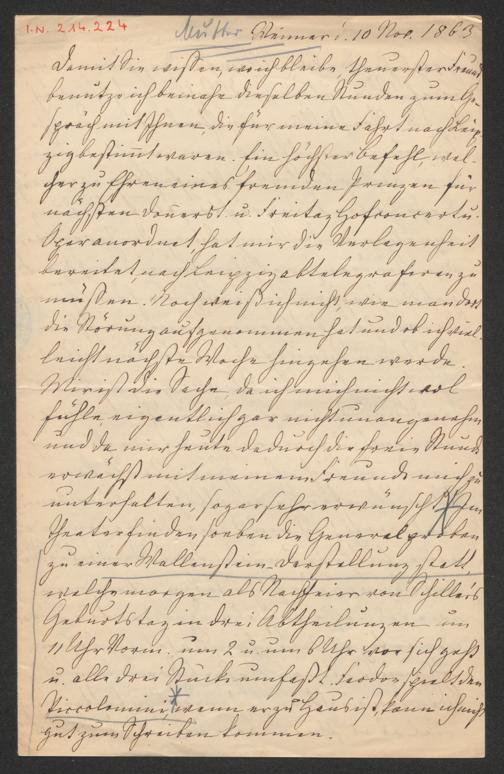 I.N. 214.224
Mutter
Weimar d. 10 Nov. 1863
Damit Sie wissen, wo ich bleibe theuerster Freund
benutze ich beinahe dieselben Stunden zum Ge-
spräch mit Ihnen, die für meine Fahrt nach Leip-
zig bestimt waren. Ein höchster Befehl, wel-
cher zu Ehren eines fremden Prinzen für
nächsten Donerst. u. Freitag Hofconcert u.
Oper anordnet, hat mir die Verlegenheit
bereitet, nach Leipzig abtelegraferen zu
müßen. Noch weiß ich nicht, wie man dort
die Störung aufgenommen hat und ob ich viel-
leicht nächste Woche hingehen werde.
Mir ist die Sache, da ich mich nicht wol
fühle, eigentlich gar nicht unangenehm
und da mir heute dadurch die freie Stunde
erwächst mit meinem Freunde mich zu
unterhalten, sogar sehr erwünscht. Im
Theater finden soeben die Generalproben
zu einer Wallenstein-Darstellung statt
welche morgen als Nachfeier von Schillers
Geburtstag in drei Abtheilungen um
11 Uhr Vorm. um 2 u. um 6 Uhr vor sich geht
u. alle drei Stücke umfaßt. Feodor spielt den
Piccolomini, wenn er zu Haus ist, kann ich nicht
gut zum Schreiben kommen.